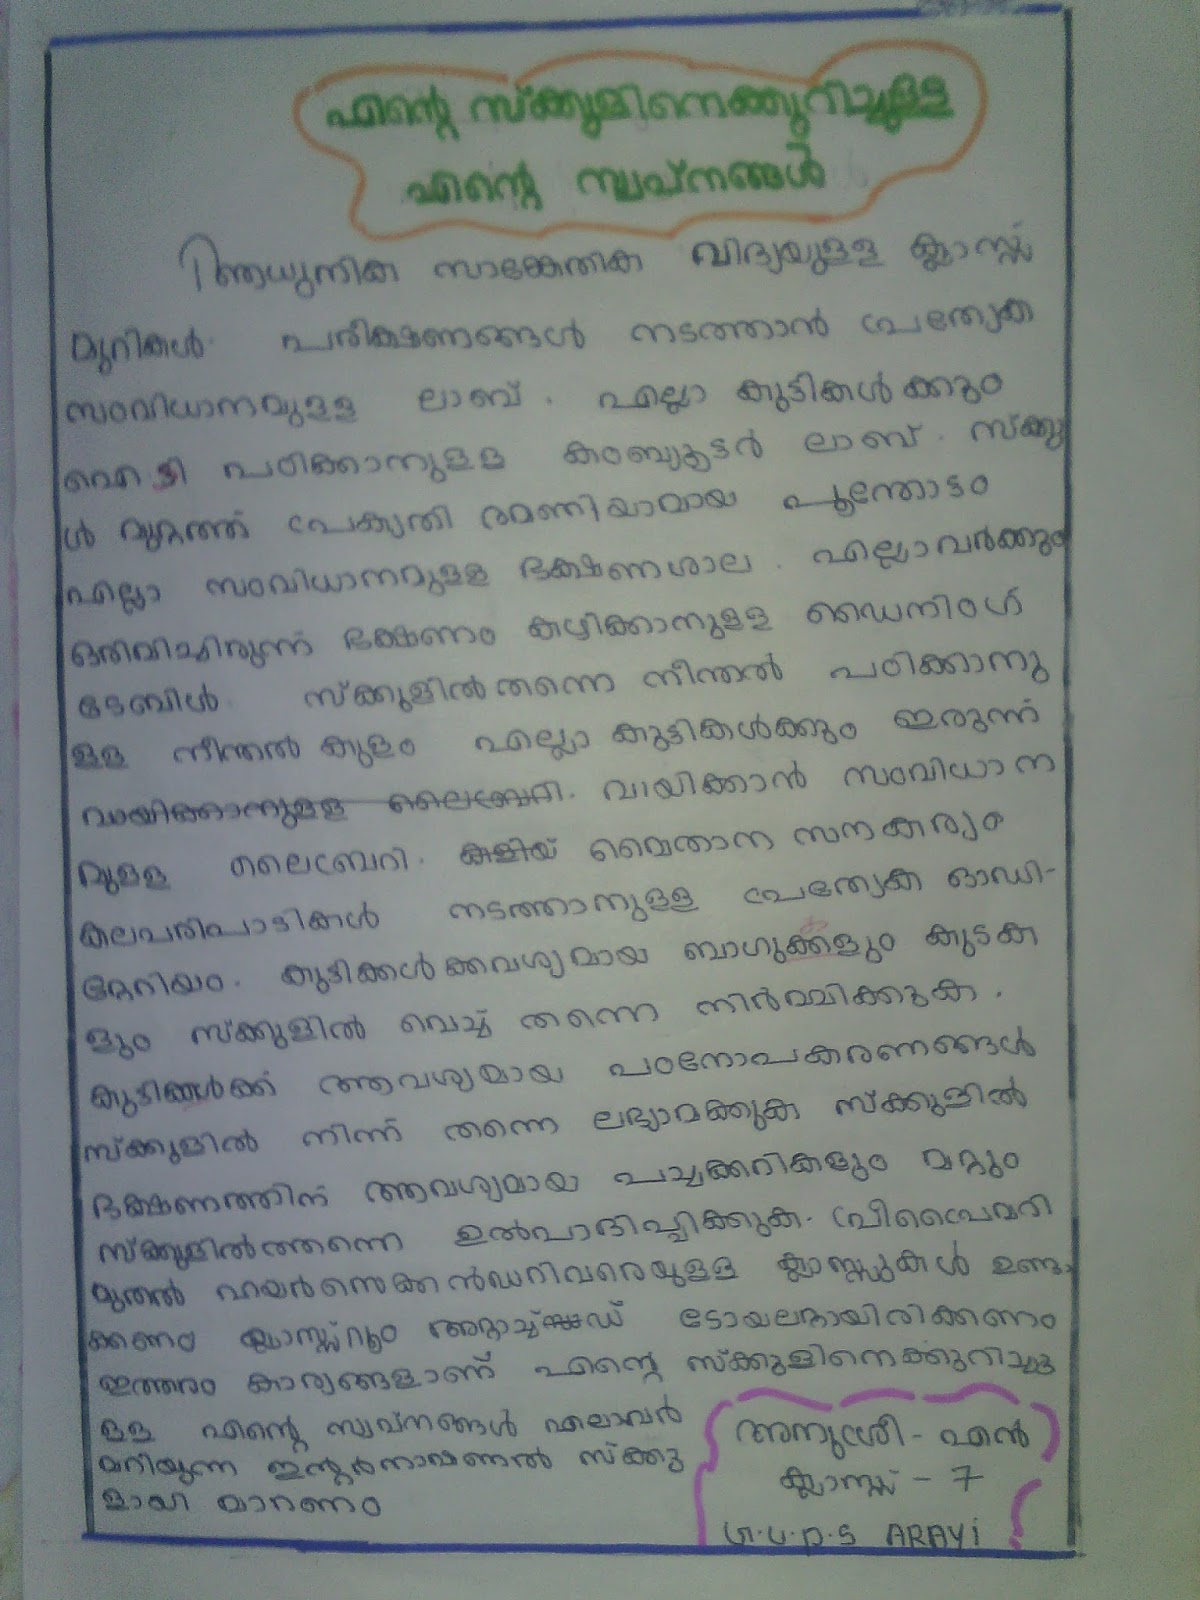 എന്റെ സ്ക്കൂളിനെക്കുറിച്ചുള്ള
എന്റെ സ്വപ്നങ്ങൾ
ആധുനിക സാങ്കേതിക വിദ്യയുള്ള ക്ലാസ്സ്
മുറികൾ. പരീക്ഷണങ്ങൾ നടത്താൻ പ്രത്യേക
സംവിധാനമുള്ള ലാബ്. എല്ലാ കുട്ടികൾക്കും
ഐ ടി പഠിക്കാനുള്ള കംബ്യൂട്ടർ ലാബ്. സ്ക്കൂ
ൾ മുറ്റത്ത് പ്രകൃതി രമണിയമായ പൂന്തോട്ടം
എല്ലാ സംവിധാനമുള്ള ഭക്ഷണശാല. എല്ലാവർക്കും
ഒരിമിച്ചിരുന്ന് ഭക്ഷണം കഴിക്കാനുള്ള ഡൈനിംഗ്
ടേബിൾ. സ്ക്കൂളിൽതന്നെ നീന്തൽ പഠിക്കാനു
ള്ള നീന്തൽ കുളം എല്ലാ കുട്ടികൾക്കും ഇരുന്ന്
വായിക്കാനുള്ള ലൈബ്രേറി. വായിക്കാൻ സംവിധാന
മുള്ള ലൈബ്രേറി. കളിയ് മൈതാന സൗകര്യം
കലപരിപാടികൾ നടത്താനുള്ള പ്രത്യേക ഓഡി-
റ്റേറിയം. കുട്ടിക്കൾക്കവശ്യമായ ബാഗുക്കളും കുടക
ളും സ്ക്കൂളിൽ വെച്ച് തന്നെ നിർമ്മിക്കുക.
കുട്ടികൾക്ക് ആവശ്യമായ പഠനോപകരണങ്ങൾ
സ്ക്കൂളിൽ നിന്ന് തന്നെ ലഭ്യാമക്കുക സ്ക്കൂളിൽ
ഭക്ഷണത്തിന് ആവശ്യമായ പച്ചക്കറികളും മറ്റും
സ്ക്കൂളിൽത്തന്നെ ഉൽപാദിപ്പിക്കുക. പ്രീപ്രൈമറി
മുതൽ ഹയർസെക്കൻഡറിവരെയുള്ള ക്ലാസ്സുകൾ ഉണ്ടാ
ക്കണം ക്ലാസ്സ്റൂം അറ്റാച്ച്ഡ് ടോയലറ്റായിരിക്കണം
ഇത്തരം കാര്യങ്ങളാണ് എന്റെ സ്ക്കൂളിനെക്കുറിച്ചു
ള്ള എന്റെ സ്വപ്നങ്ങൾ എലാവർ
മറിയുന്ന ഇന്റർനാഷണൽ സ്ക്കൂ
ളായി മാറണം
അനുശ്രീ - എൻ
ക്ലാസ്സ് - 7
G.U.P.S ARAYi